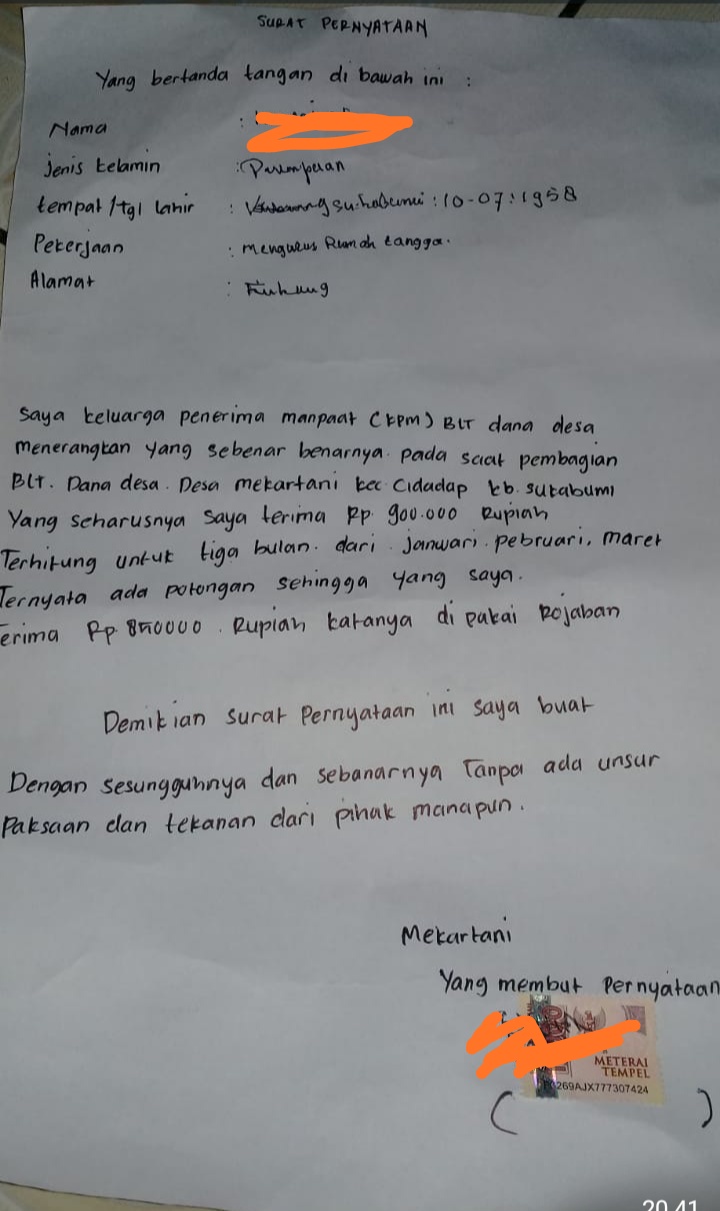 SURAT PERNYATAAN
Yang bertanda tangan di bawah ini :
Nama :
Jenis kelamin : Perempuan
tempat / tgl lahir : sukabumi : 10-07-1958
Pekerjaan : mengurus Rumah tangga.
Alamat :
Saya keluarga penerima manpaat (KPM) BLT dana desa
menerangkan yang sebenar benarnya. pada saat pembagian
BLT. Dana desa. Desa mekartani kec Cidadap kb. sukabumi
Yang seharusnya saya terima Rp. 900.000 Rupiah
Terhitung untuk tiga bulan. dari. januari. pebruari, maret
Ternyata ada potongan sehingga yang saya.
erima Rp 850000. Rupiah katanya di pakai Rojaban
Demikian surat Pernyataan ini saya buat
Dengan sesungguhnya dan sebanarnya Tanpa ada unsur
Paksaan dan tekanan dari pihak manapun.
Mekartani
Yang membut Pernyataan
METERAI
TEMPEL
269AJX777307424
( )
20.41